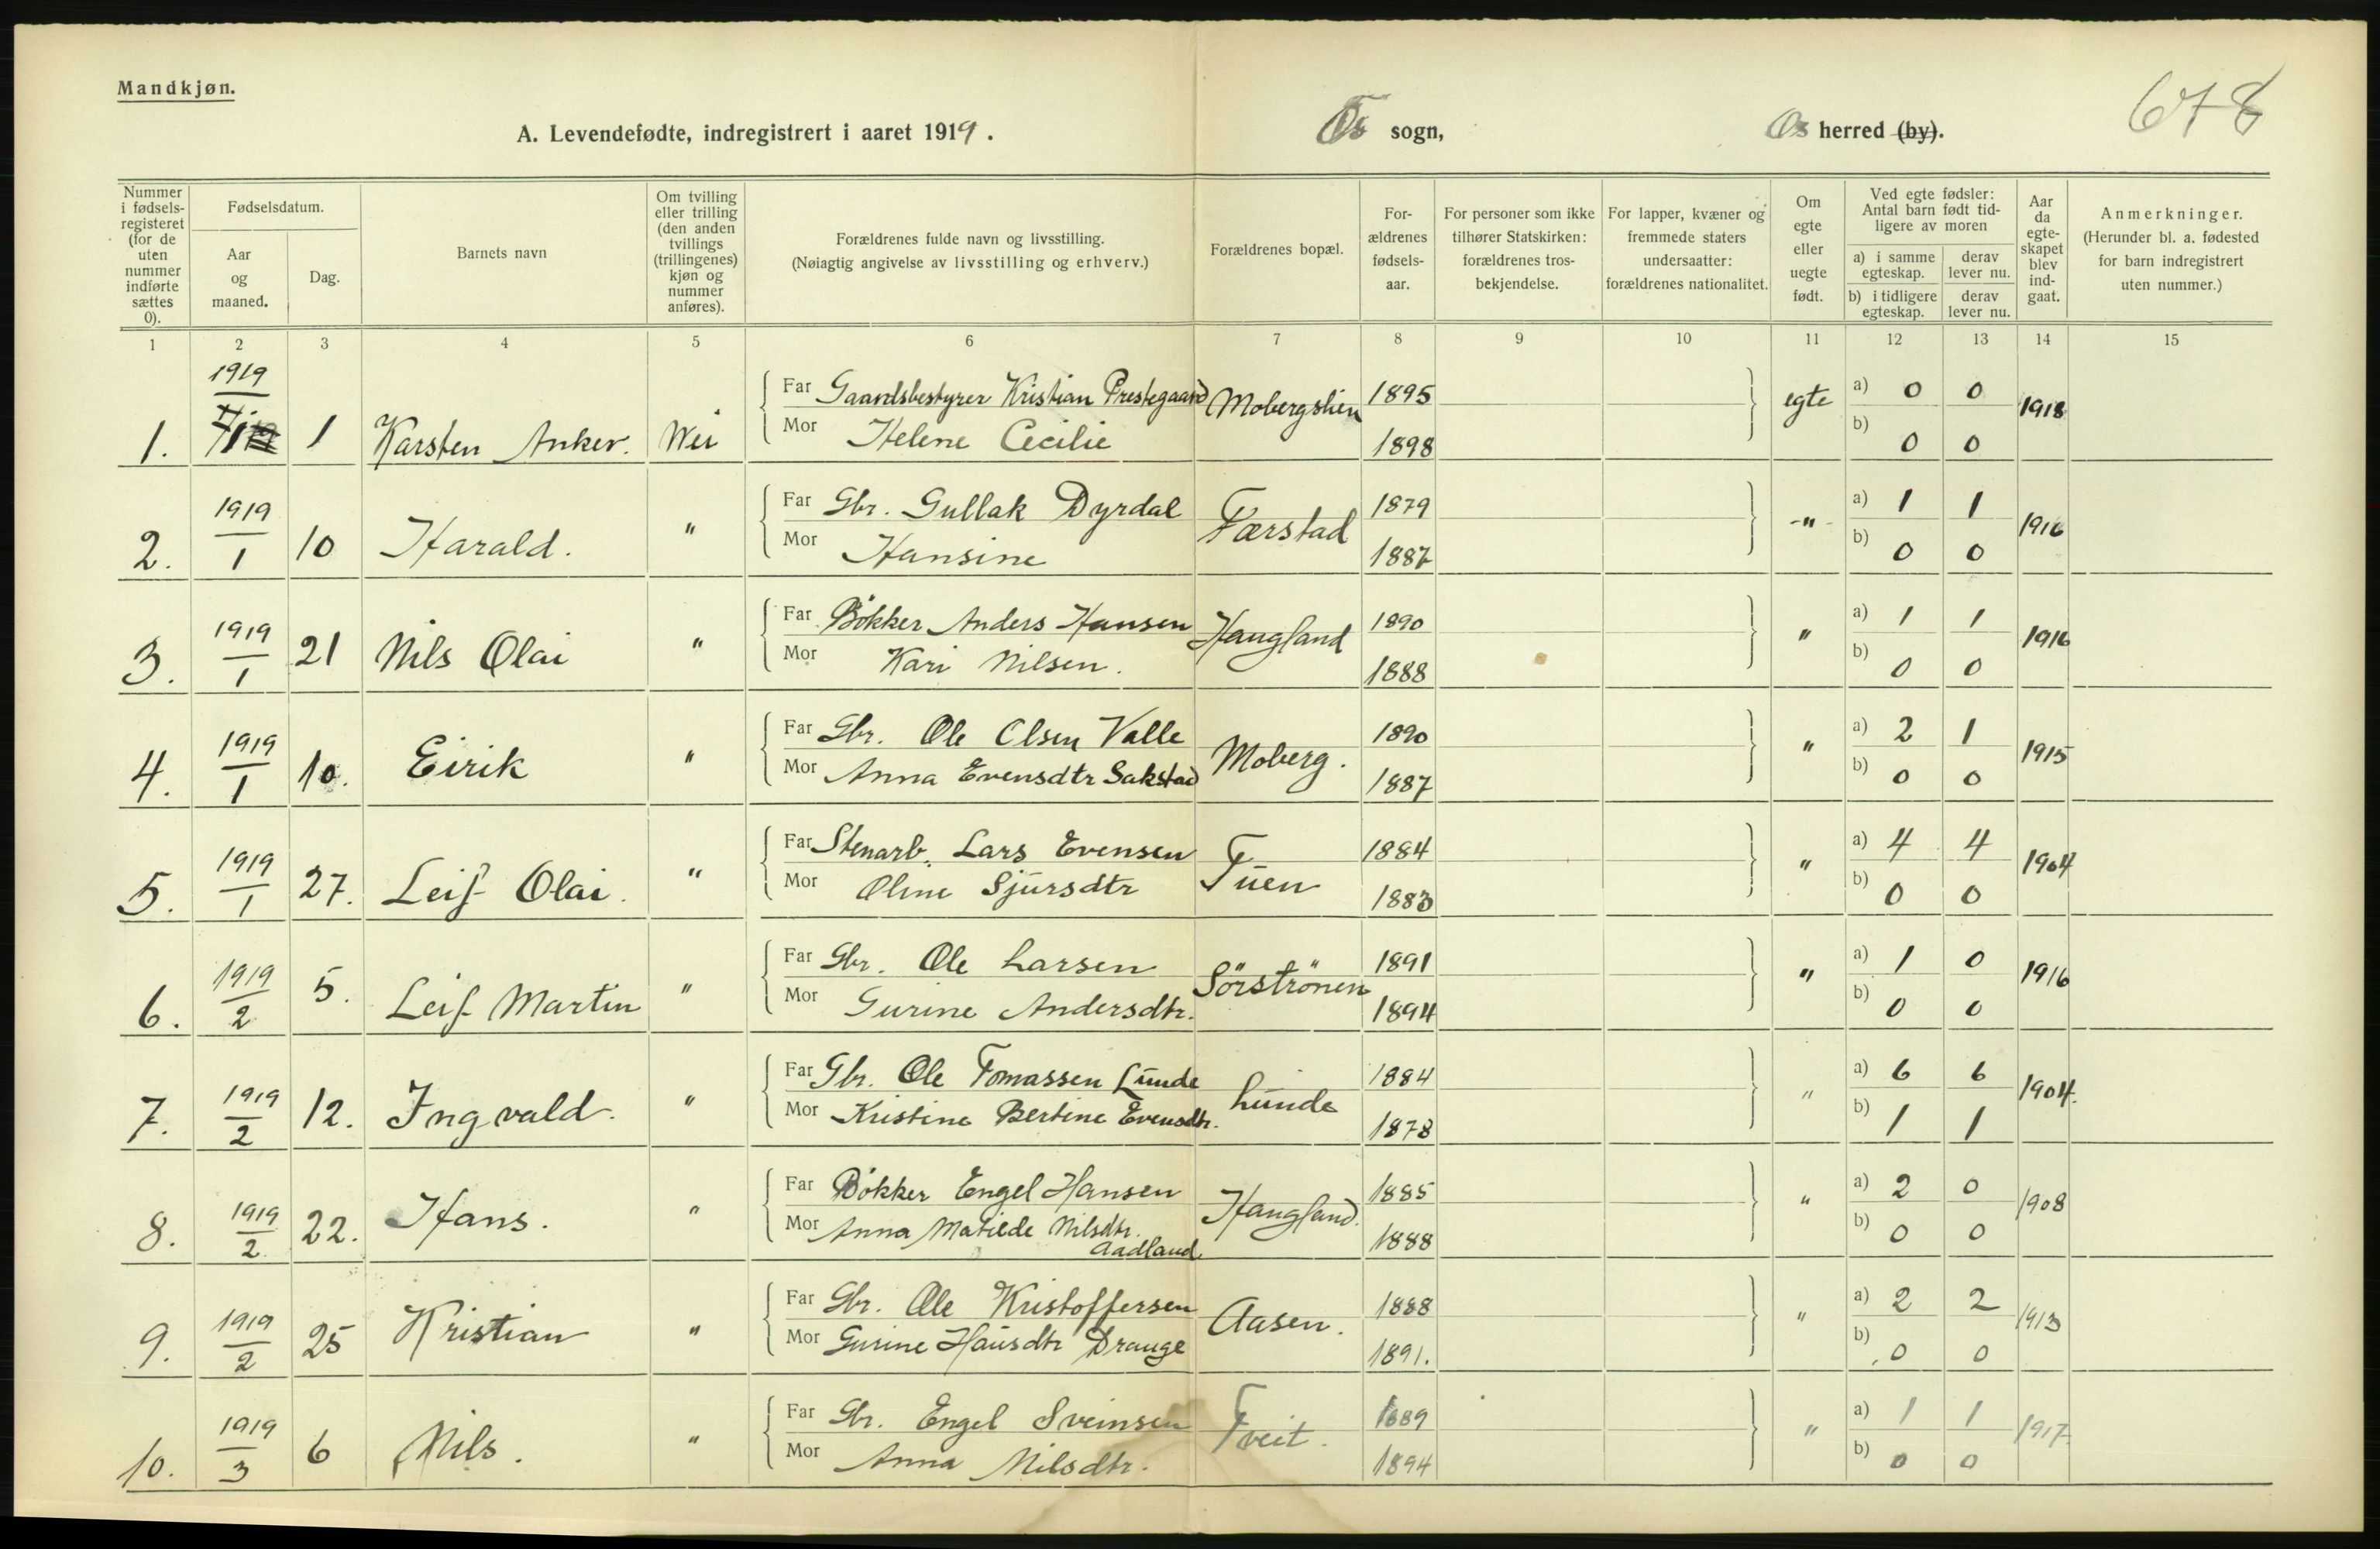 Mandkjøn.
678
A. Levendefødte, indregistrert i aaret 1919.
Os sogn,
Os herred (by).
Nummer i fødsels-registeret (for de uten nummer indførte sættes 0).
Fødselsdatum.
Aar og maaned.
Dag.
Barnets navn
Om tvilling eller trilling (den anden tvillings (trillingenes) kjøn og nummer anføres).
Forældrenes fulde navn og livsstilling.
(Nøiagtig angivelse av livsstilling og erhverv.)
Forældrenes bopæl.
For-ældrenes fødsels-aar.
For personer som ikke tilhører Statskirken: forældrenes tros-bekjendelse.
For lapper, kvæner og fremmede staters undersaatter: forældrenes nationalitet.
Om egte eller uegte født.
Ved egte fødsler: Antal barn født tid-ligere av moren
a) i samme egteskap.
derav lever nu.
b) i tidligere egteskap.
derav lever nu.
Aar da egte-skapet blev ind-gaat.
Anmerkninger.
(Herunder bl. a. fødested for barn indregistrert uten nummer.)
1 2 3 4 5 6 7 8 9 10 11 12 13 14 15
1. 1919 1 1 Karsten Anker. Nei
Far Gaardsbestyrer Kristian Prestegaard Mobergslien 1895 egte a) 0 0 1918
Mor Helene Cecilie 1898 b) 0 0
2. 1919 1 10 Harald. "
Far Gbr. Gullak Dyrdal Færstad 1879 -"- a) 1 1 1916
Mor Hansine 1887 b) 0 0
3. 1919 1 21 Nils Olai "
Far Bökker Anders Hansen Haugland 1890 " a) 1 1 1916
Mor Kari Nilsen. 1888 b) 0 0
4. 1919 1 10. Eirik "
Far Gbr. Ole Olsen Valle Moberg. 1890 " a) 2 1 1915
Mor Anna Evensdtr Sakstad 1887 b) 0 0
5. 1919 1 27. Leif Olai. "
Far Stenarb. Lars Evensen Tuen 1884 " a) 4 4 1904
Mor Oline Sjursdtr 1883 b) 0 0
6. 1919 2 5. Leif Martin "
Far Gbr. Ole Larsen Sörströnen 1891 " a) 1 0 1916
Mor Gurine Andersdtr. 1894 b) 0 0
7. 1919 2 12. Ingvald. "
Far Gbr. Ole Tomassen Lunde Lunde 1884 " a) 6 6 1904.
Mor Kristine Bertine Evensdtr. 1878 b) 1 1
8. 1919 2 22. Hans. "
Far Bökker Engel Hansen Haugland. 1885 " a) 2 0 1908
Mor Anna Matilde Nilsdtr. Aadland 1888 b) 0 0
9. 1919 2 25 Kristian "
Far Gbr. Ole Kristoffersen Aasen. 1888 " a) 2 2 1913
Mor Gurine Hausdtr Drange 1891. b) 0 0
10. 1919 3 6 Nils. "
Far Gbr. Engel Sveinsen Tveit. 1889 " a) 1 1 1917
Mor Anna Nilsdtr. 1894 b) 0 0